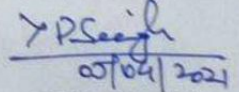 YPSingh
05/04/2021